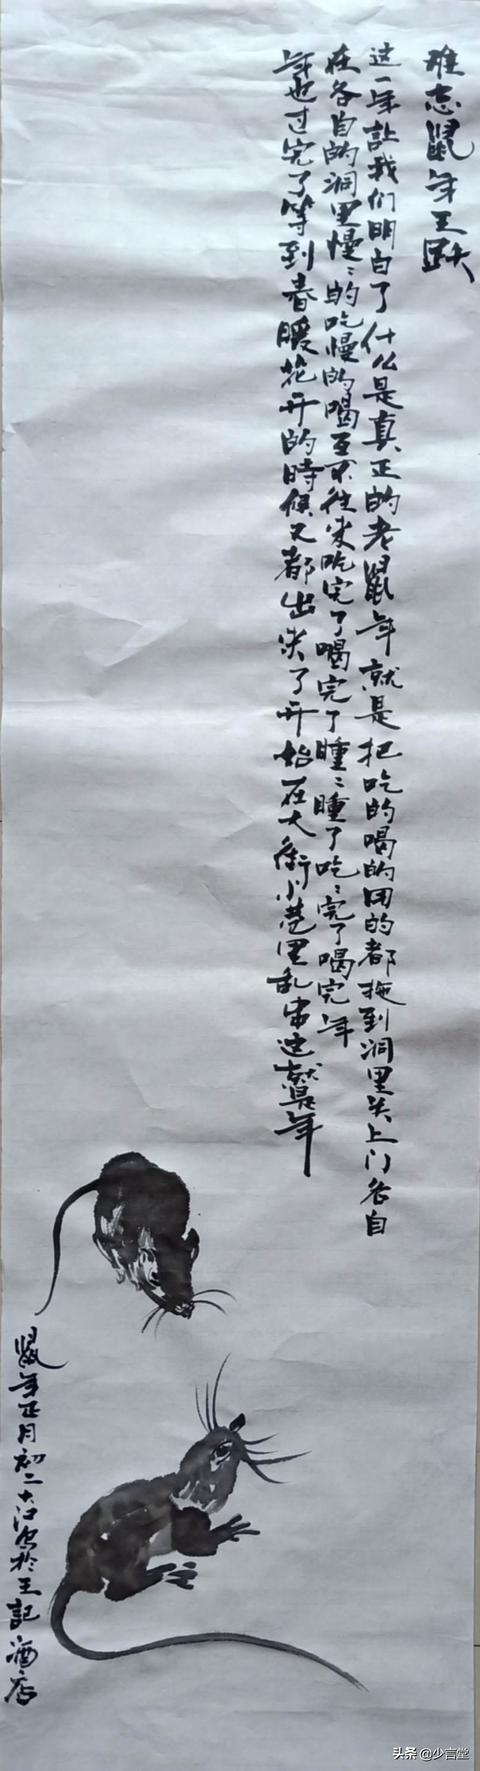 难忘鼠年王跃
这一年让我们明白了什么是真正的老鼠年就是把吃的喝的用的都拖到洞里关上门各自
在各自的洞里慢〻的吃慢的喝互不往来吃完了喝完了睡〻睡了吃〻完了喝完年
年也过完了等到春暖花开的時候又都出来了开始在大街小巷里乱窜这就是年
鼠年正月初二大江写於王記酒店
头条@少言堂